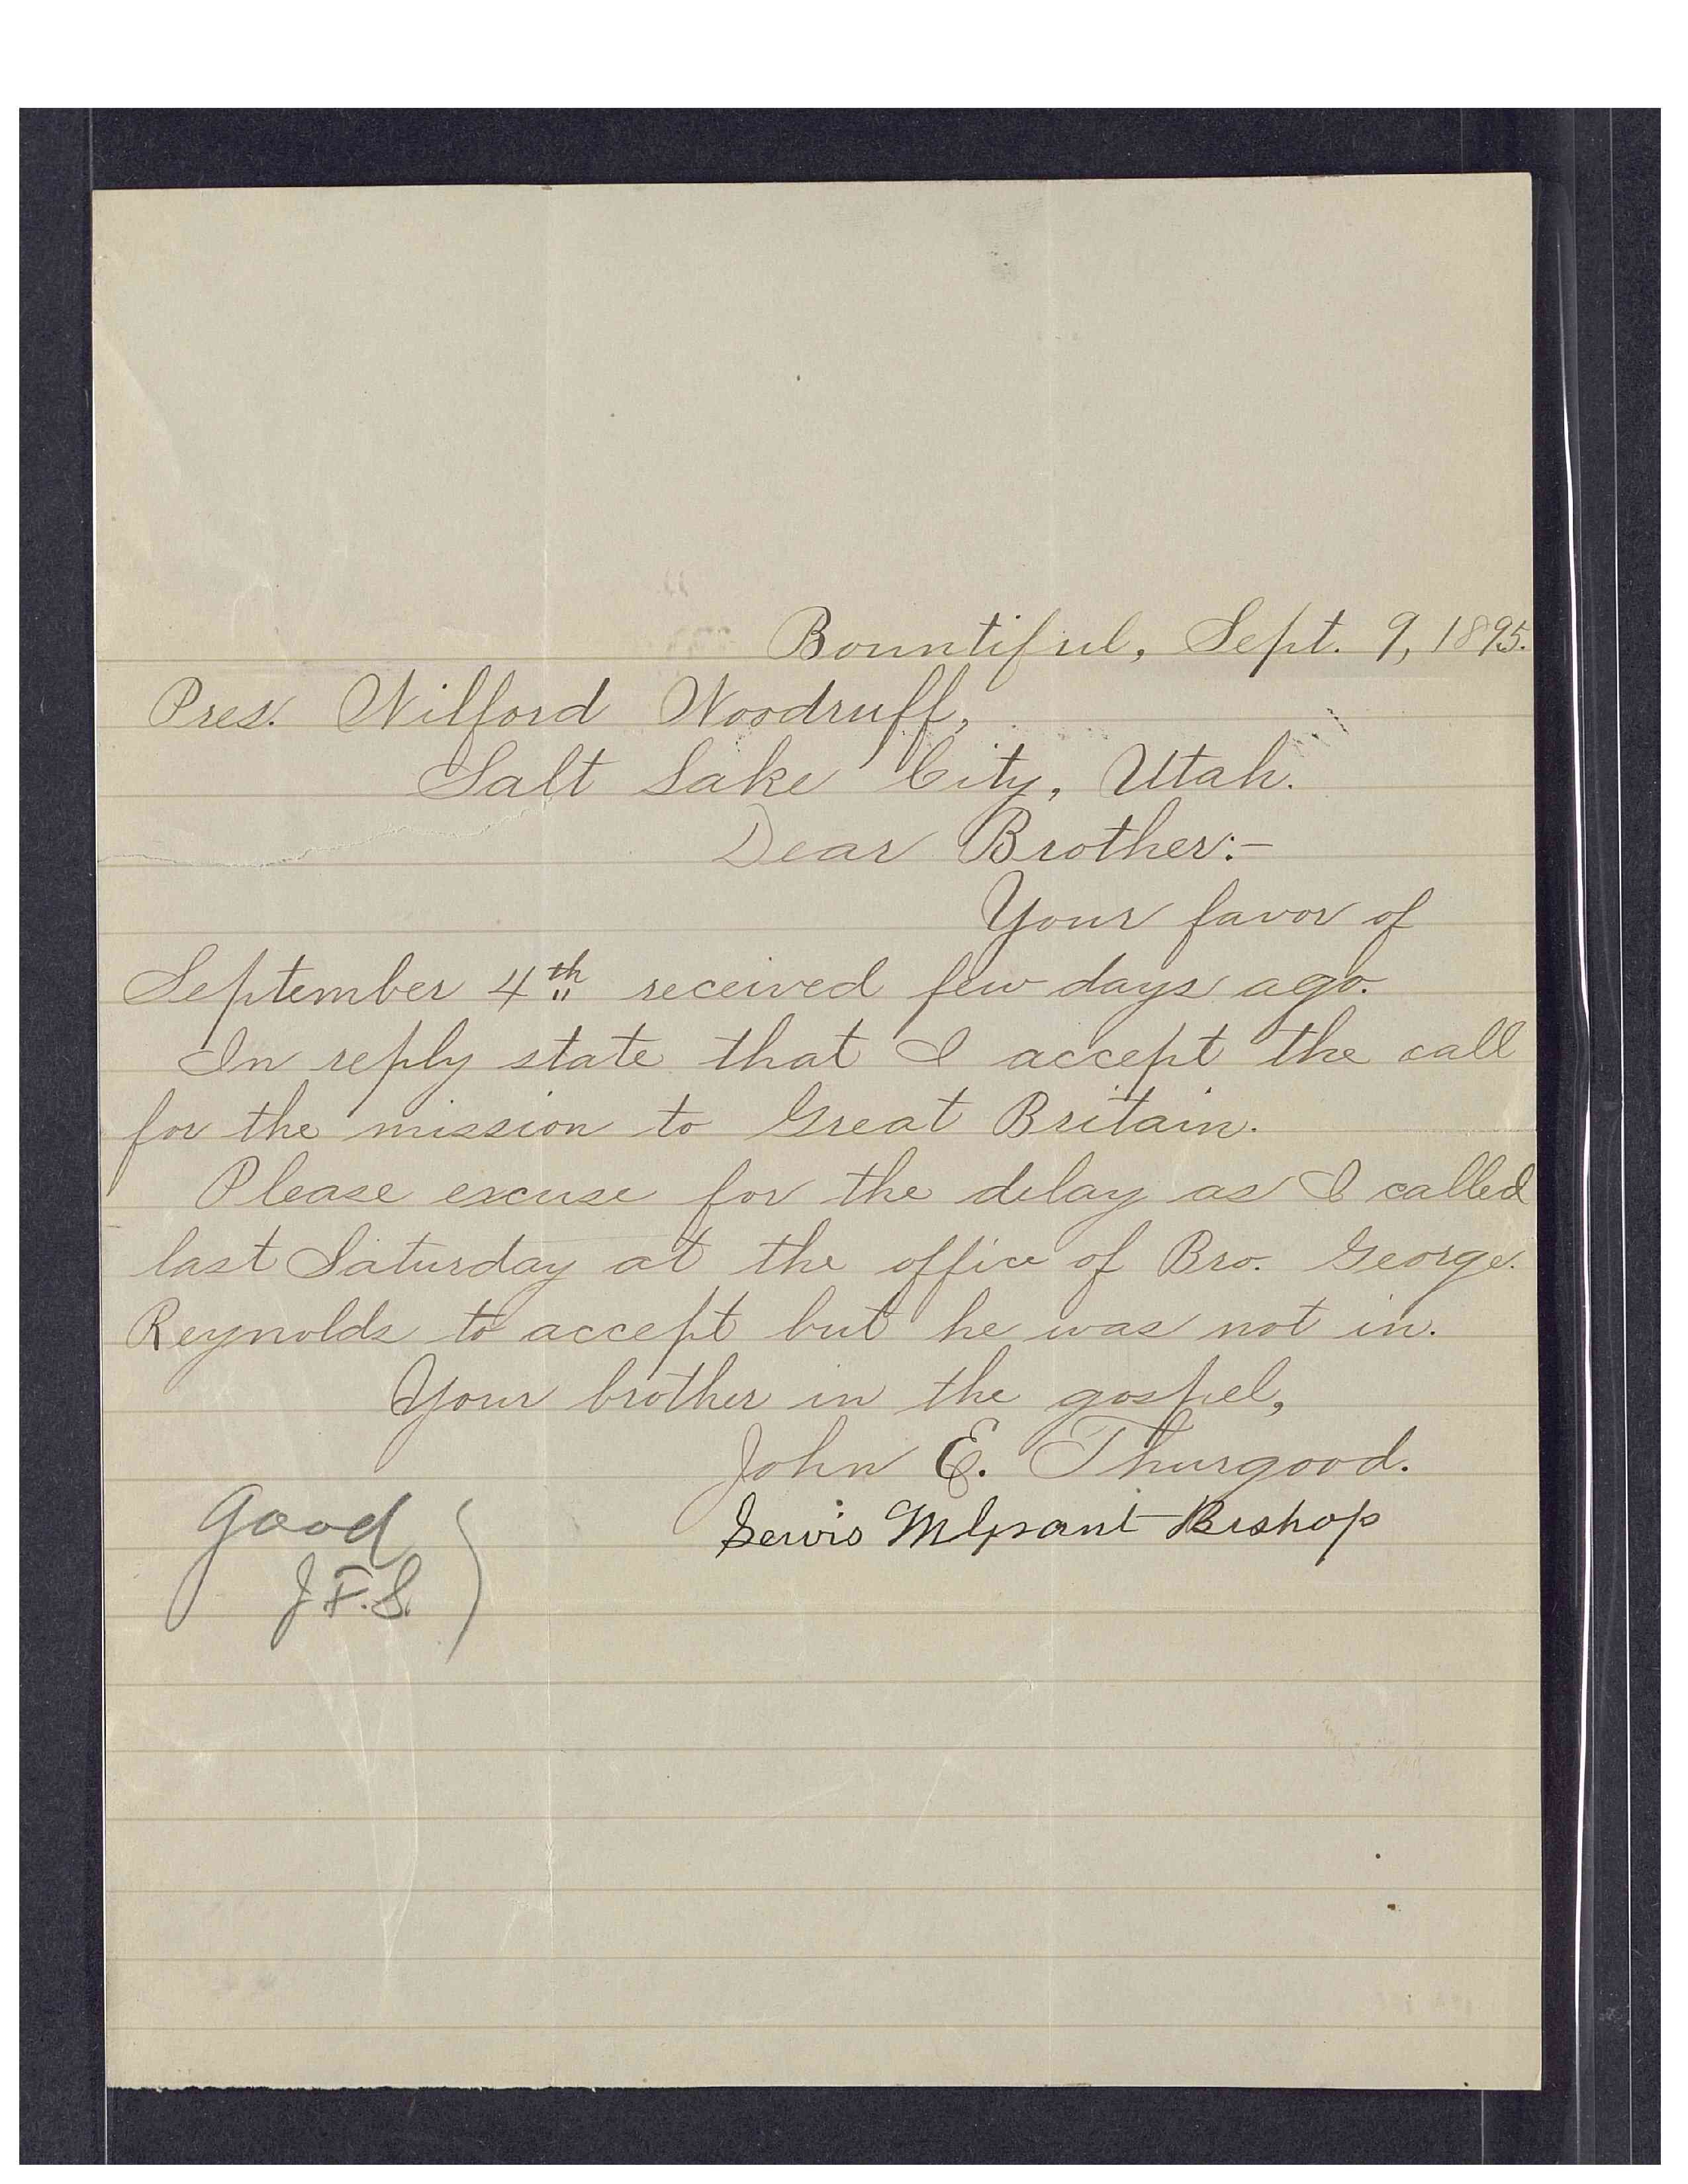 Bountiful, Sept. 9, 1895.
Pres. Wilford Woodruff,
Salt Lake City, Utah.
Dear Brother:-
Your favor of
September 4th received few days ago.
In reply state that I accept the call
for the mission to Great Britain.
Please excuse for the delay as I called
last Saturday at the office of Bro. George
Reynolds to accept but he was not in.
Your brother in the gospel,
John E. Thurgood.
Lewis M Grant Bishop
Good
J.F.S.